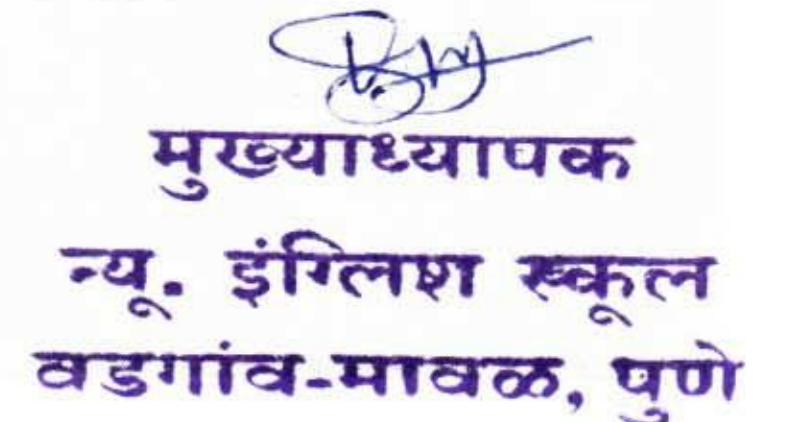 मुख्याध्यापक
न्यू. इंग्लिश स्कूल
वडगांव-मावळ, पुणे